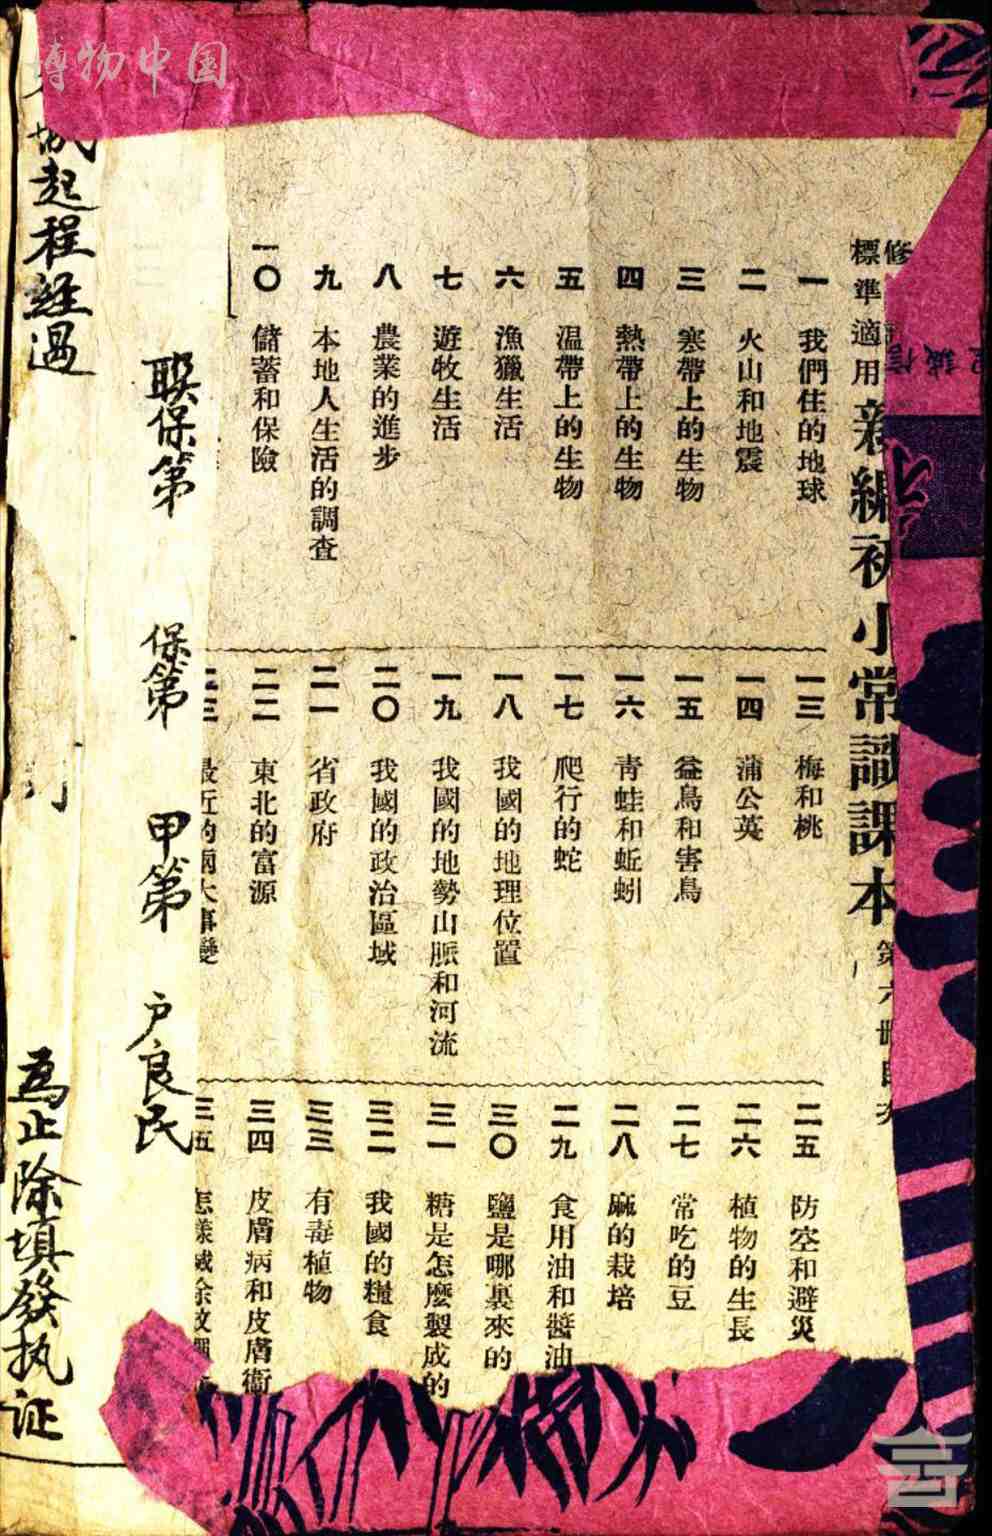 博物中国
標準適用新編初小常識課本
第六冊目次
一 我們住的地球
二 火山和地震
三 寒帶上的生物
四 熱帶上的生物
五 温帶上的生物
六 漁獵生活
七 遊牧生活
八 農業的進步
九 本地人生活的調查
一〇 儲蓄和保險
一三 梅和桃
一四 蒲公英
一五 益鳥和害鳥
一六 青蛙和蚯蚓
一七 爬行的蛇
一八 我國的地理位置
一九 我國的地勢山脈和河流
二〇 我國的政治區域
二一 省政府
二二 東北的富源
二三 最近的兩大事變
二五 防空和避災
二六 植物的生長
二七 常吃的豆
二八 麻的栽培
二九 食用油和醬油
三〇 鹽是哪裏來的
三一 糖是怎麼製成的
三二 我國的糧食
三三 有毒植物
三四 皮膚病和皮膚衞
三五 怎樣滅除蚊蠅
联保第 保第 甲第 户良民
城起程經過
為止除填發执证